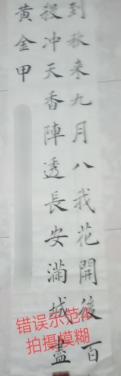 到秋来九月八我花開後百
殺冲天香陣透長安滿城盡
黄金甲
错误示范
拍摄模糊